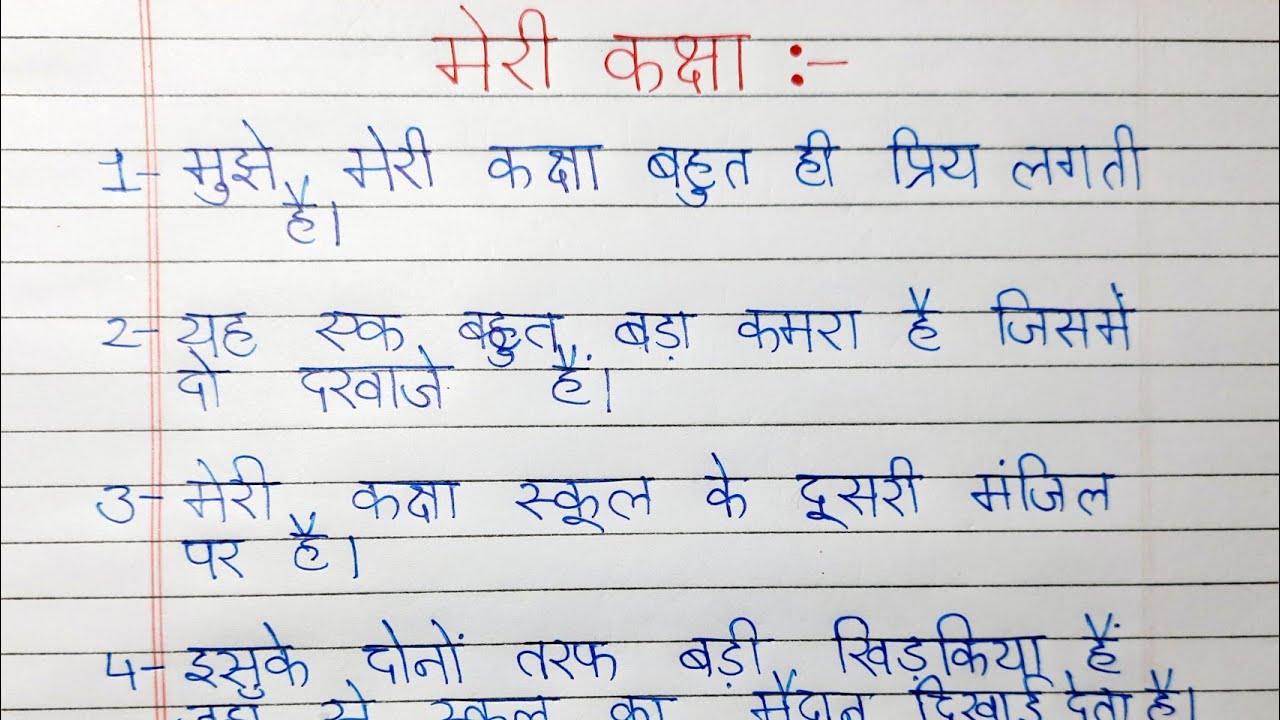 मेरी कक्षा :-
1- मुझे मेरी कक्षा बहुत ही प्रिय लगती
है।
2- यह एक बहुत बड़ा कमरा है जिसमें
दो दरवाजे हैं।
3- मेरी कक्षा स्कूल के दूसरी मंजिल
पर है।
4- इसके दोनों तरफ बड़ी खिड़किया हैं
जहा से स्कूल का मैदान दिखाई देता है।